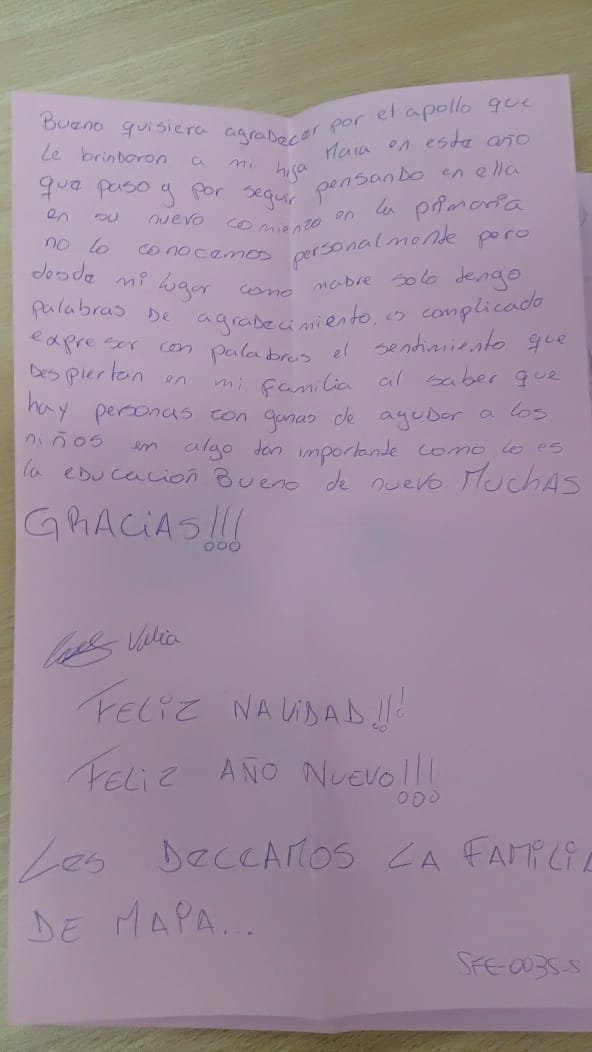 Bueno quisiera agradecer por el apollo que
le brindaron a mi hija Maia en este año
que paso y por seguir pensando en ella
en su nuevo comienzo en la primaria
no lo conocemos personalmente pero
desde mi lugar como madre solo tengo
palabras de agradecimiento. es complicado
expresar con palabras el sentimiento que
despiertan en mi familia al saber que
hay personas con ganas de ayudar a los
niños en algo tan importante como lo es
la educación Bueno de nuevo MUCHAS
GRACIAS!!!
FELIZ NAVIDAD!!!
FELIZ AÑO NUEVO!!!
Les DECEAMOS LA FAMILIA
DE
SFE-0035-S